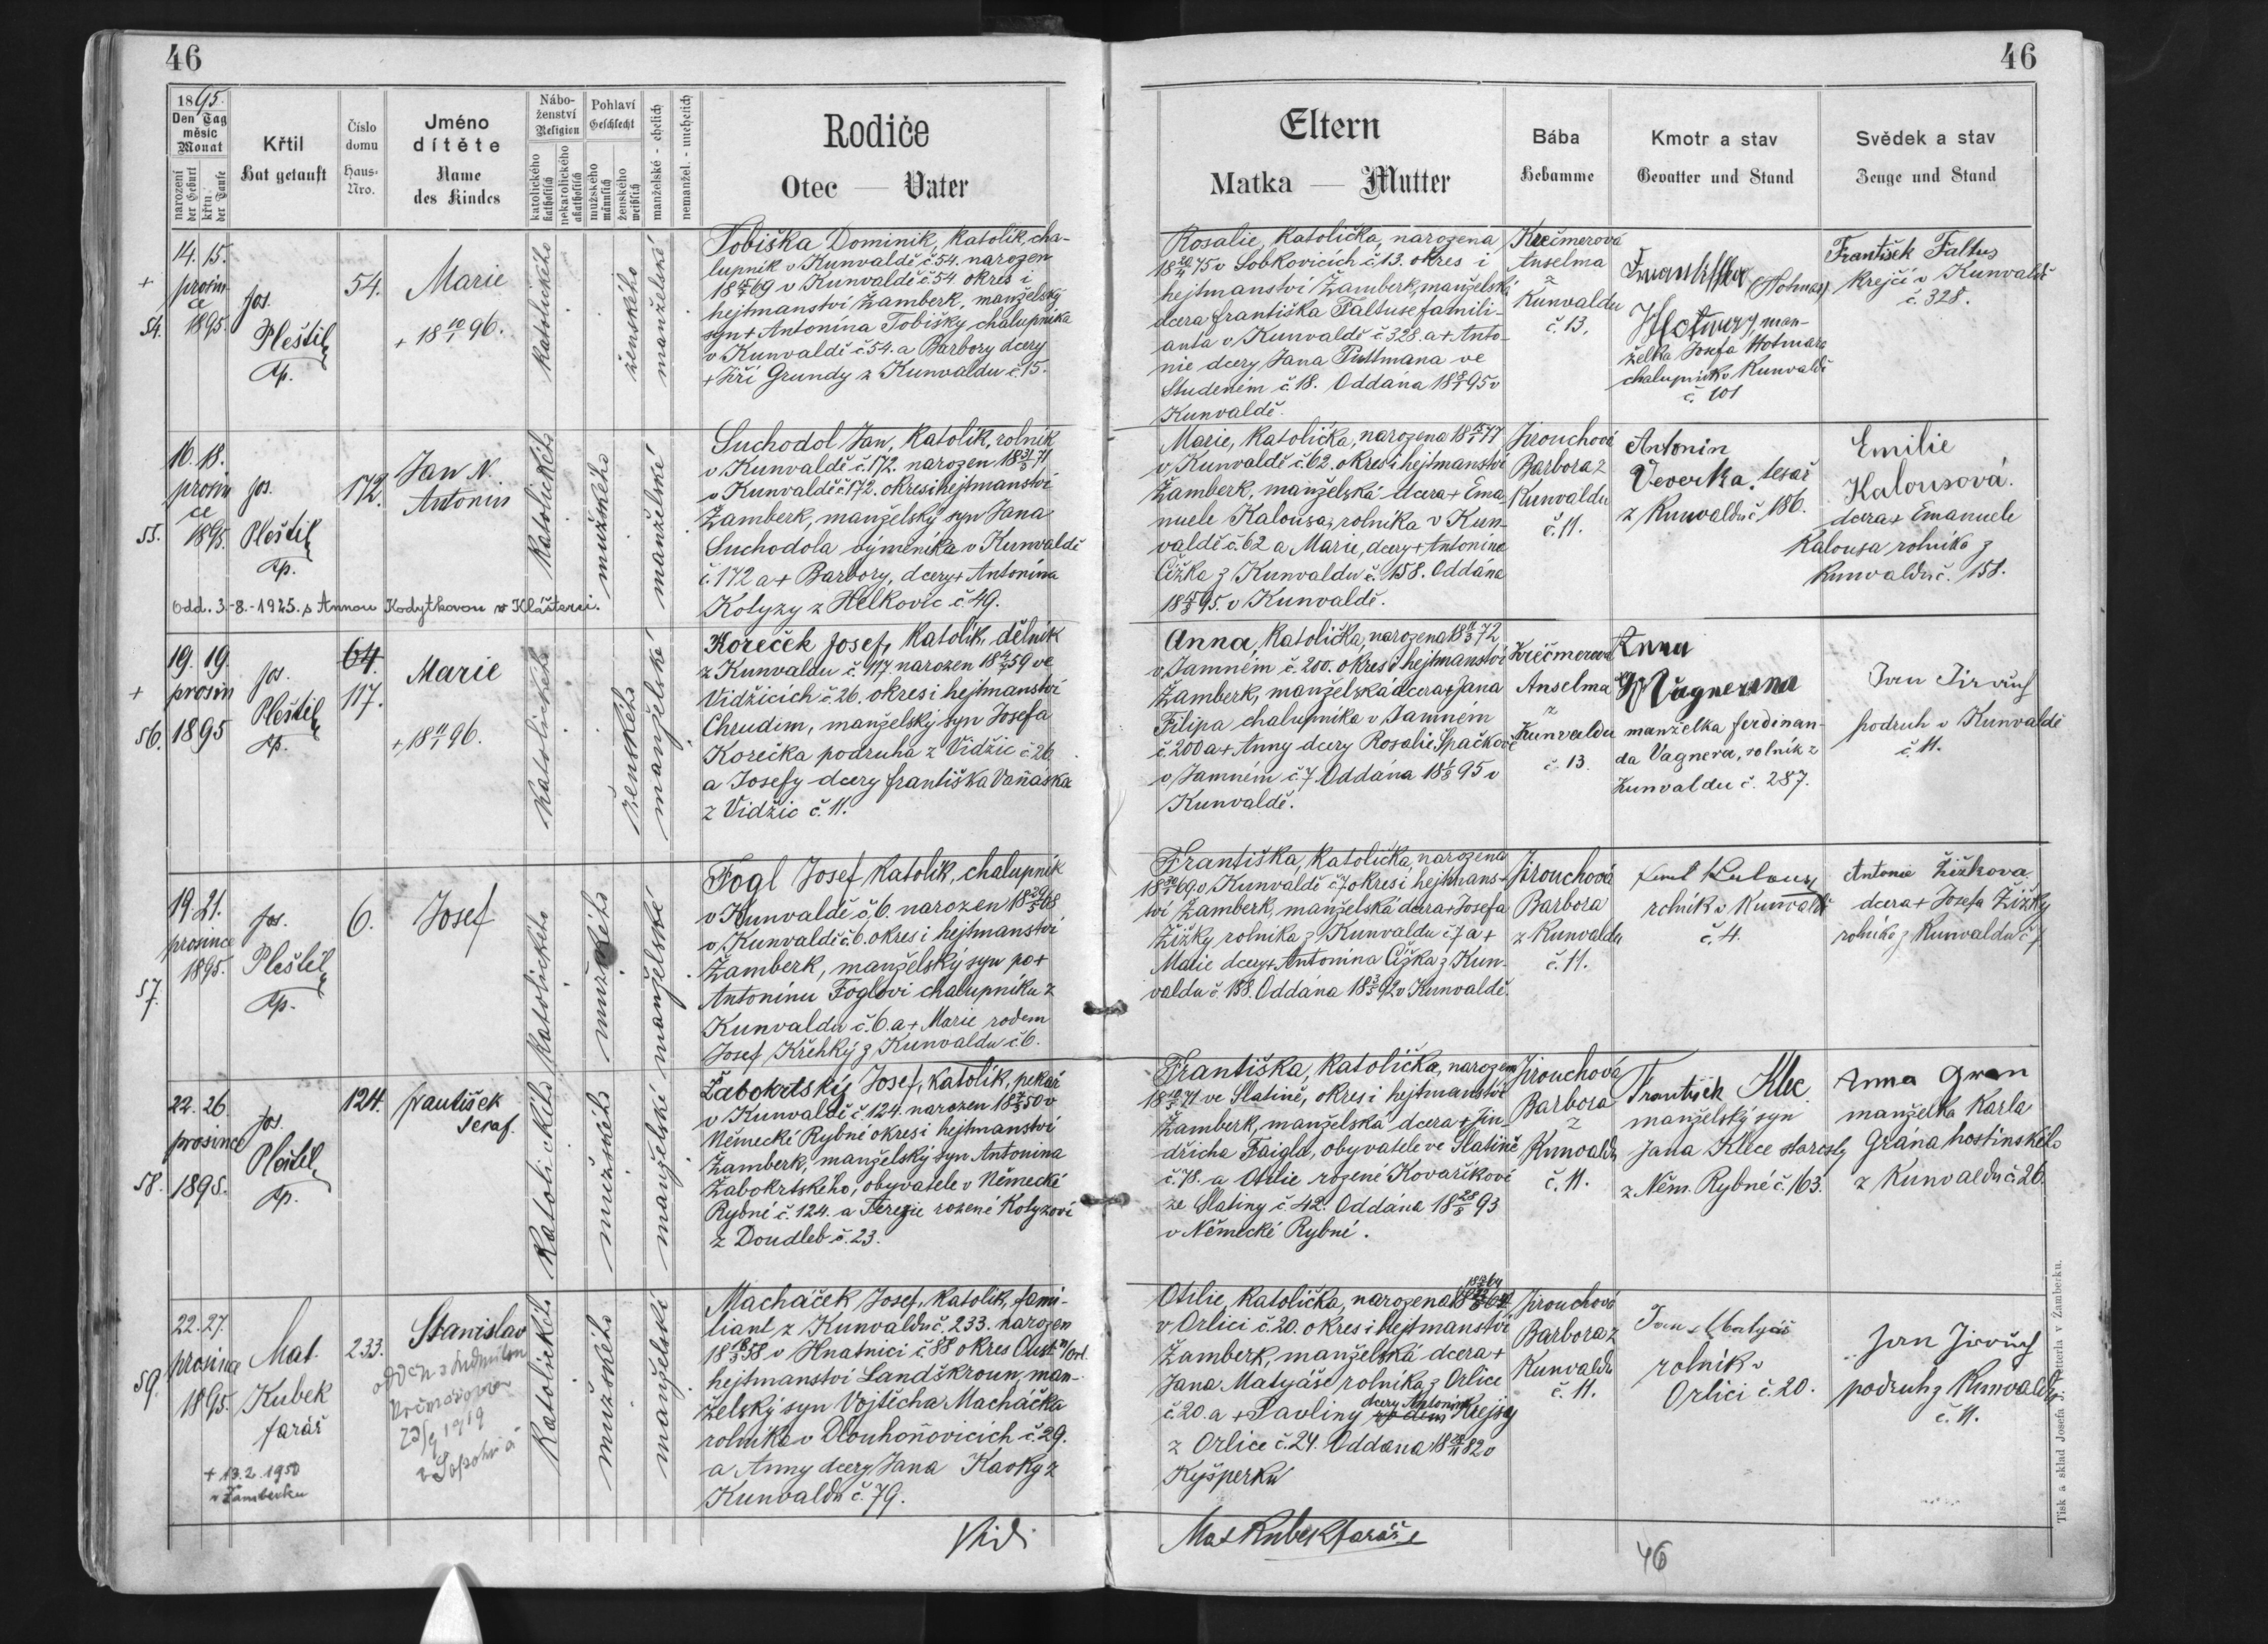 46
46
1895.
Den Tag
měsíc
Monat
narození
der Geburt
křtu
der Taufe
Křtil
Hat getauft
Číslo
domu
Haus-
Nro.
Jméno
dítěte
Name
des Kindes
Nábo-
ženství
Religion
katolického
katholisch
nekatolického
akatholisch
Pohlaví
Geschlecht
mužského
männlich
ženského
weiblich
manželské - ehelich
nemanžel. - unehelich
Rodiče
Otec — Vater
Eltern
Matka — Mutter
Bába
Hebamme
Kmotr a stav
Gevatter und Stand
Svědek a stav
Zeuge und Stand
14. 15.
prosin
ce
1895
+
54.
Jos.
Pleštil
kp.
54.
Marie
+ 18 10/1 96.
katolického
ženského
manželské
Tobiška Dominik, katolík, cha-
lupník v Kunvaldě č. 54. narozen
69 v Kunvaldě č. 54. okres i
hejtmanství Žamberk, manželský
syn + Antonína Tobišky chalupníka
v Kunvaldě č. 54. a Barbory dcery
+ Jiří Grundy z Kunvaldu č. 15.
Rosalie, katolička, narozena
75 v Sobkovicích č. 13. okres i
hejtmanství Žamberk, manželská
dcera Františka Faltuse famili-
anta v Kunvaldě č. 328. a + Anto-
nie dcery Jana ve
Studeném č. 18. Oddána 95 v
Kunvaldě.
Krečmerová
Anselma
z
Kunvaldu
č. 13.
(Hotmar)
man-
želka Josefa Hotmara
chalupník v Kunvaldě
č. 101
František Faltus
krejčí v Kunvaldě
č. 328.
16. 18.
prosin
ce
1895.
55.
Jos.
Pleštil
kp.
172.
Jan N.
Antonin
katolického
mužského
manželské
Odd. 3.-8.-1925. s Annou Kodytkovou v Klášterci.
Suchodol Jan, katolík, rolník
v Kunvaldě č. 172. narozen 71
v Kunvaldě č. 172. okres i hejtmanství
Žamberk, manželský syn Jana
Suchodola výměníka v Kunvaldě
č. 172 a + Barbory, dcery + Antonína
Kolyzy z Helkovic č. 49.
Marie, katolička, narozena 77
v Kunvaldě č. 62. okres i hejtmanství
Žamberk, manželská dcera + Ema-
nuele Kalousa, rolníka v Kun-
valdě č. 62 a Marie, dcery + Antonína
Čížka z Kunvaldu č. 158. Oddána
95. v Kunvaldě.
Jirouchová
Barbora z
Kunvaldu
č. 11.
Antonin
Veverka. tesař
z Kunvaldu č. 186.
Emilie
Kalousová.
dcera + Emanuele
Kalousa rolníka z
Kunvaldu č. 158.
19. 19.
prosin
1895
+
56.
Jos.
Pleštil
kp.
64.
117.
Marie
+ 18 11/1 96.
katolického
ženského
manželské
Koreček Josef, katolík, dělník
z Kunvaldu č. 117. narozen 59 ve
Vidžicích č. 26. okres i hejtmanství
Chrudim, manželský syn Josefa
Korečka podruha z Vidžic č. 26
a Josefy dcery Františka Vaňáska
z Vidžic č. 11.
Anna, katolička, narozena 72
v Jamném č. 200. okres i hejtmanství
Žamberk, manželská dcera + Jana
Filipa chalupníka v Jamném
č. 200 a + Anny dcery Rosalie Spačkové
v Jamném č. 7. Oddána 95 v
Kunvaldě.
Krečmerová
Anselma
z
Kunvaldu
č. 13.
Anna
Vagnerová
manželka Ferdinan-
da Vagnera, rolník z
Kunvaldu č. 287.
Jan Jirouch
podruh v Kunvaldě
č. 11.
19. 21.
prosince
1895.
57.
Jos.
Pleštil
kp.
6.
Josef
katolického
mužského
manželské
Fogl Josef, katolík, chalupník
v Kunvaldě č. 6. narozen 68
v Kunvaldě č. 6. okres i hejtmanství
Žamberk, manželský syn po +
Antonínu Foglovi chalupníku z
Kunvaldu č. 6. a + Marie rodem
Josef Křehký z Kunvaldu č. 6.
Františka, katolička, narozena
69 v Kunvaldě č. 7 okres i hejtmans-
tví Žamberk, manželská dcera + Josefa
Žižky rolníka z Kunvaldu č. 7 a +
Marie dcery + Antonína Čížka z Kun-
valdu č. 158. Oddána 92 v Kunvaldě.
Jirouchová
Barbora
z Kunvaldu
č. 11.
rolník v Kunvaldě
č. 4.
Antonie Žižkova
dcera + Josefa Žižky
rolníka z Kunvaldu č. 7
22. 26.
prosince
1895.
58.
Jos.
Pleštil
kp.
124.
František
Seraf.
katolického
mužského
manželské
Žabokrtský Josef, katolík, pekař
v Kunvaldě č. 124. narozen 50 v
Německé Rybné okres i hejtmanství
Žamberk, manželský syn Antonína
Žabokrtského, obyvatele v Německé
Rybné č. 124. a Terezie rozené Kotyzové
z Doudleb č. 23.
Františka, katolička, narozena
71 ve Slatině, okres i hejtmanství
Žamberk, manželská dcera + Jin-
dřicha Faigla, obyvatele ve Slatině
č. 78. a Otilie rozené Kovaříkové
ze Slatiny č. 42. Oddána 93
v Německé Rybné.
Jirouchová
Barbora
z
Kunvaldu
č. 11.
František Klec
manželský syn
Jana Klece starosty
z Něm. Rybné č. 163.
Anna Gran
manželka Karla
Grána hostinského
z Kunvaldu č. 26.
22. 27.
prosince
1895.
59.
Mat.
Kubek
farář
+ 13. 2. 1950
v Žamberku
233.
Stanislav
katolického
mužského
manželské
Macháček Josef, katolík, fami-
liant z Kunvaldu č. 233. narozen
58 v Hnatnici č. 88 okres Oust. n/Orl.
hejtmanství Landškroun, man-
želský syn Vojtěcha Macháčka
rolníka v Dlouhoňovicích č. 29.
a Anny dcery Jana Kavky z
Kunvaldu č. 79.
Otilie, katolička, narozena 64
v Orlici č. 20. okres i hejtmanství
Žamberk, manželská dcera +
Jana Matyáše rolníka z Orlice
dcery Antonína
č. 20. a + Pavliny rodem Krejsy
z Orlice č. 24. Oddána 82 v
Kyšperku
Jirouchová
Barbora z
Kunvaldu
č. 11.
Jan Matyáš
rolník v
Orlici č. 20.
Jan Jirouch
podruh z Kunvaldu
č. 11.
Vidi
Mat Kubek farář
46
Tisk a sklad Josefa v Žamberku.